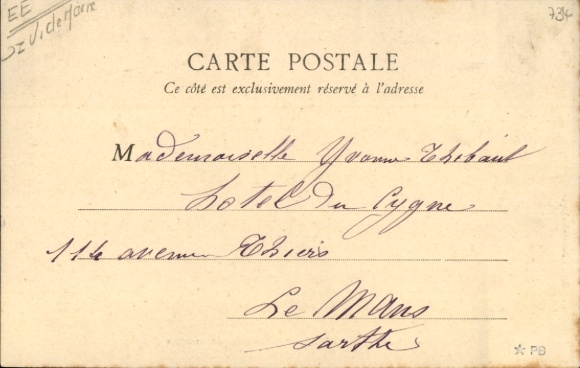 EE
734
CARTE POSTALE
Ce côté est exclusivement réservé à l'adresse
Mademoiselle Yvonne Thibaut
hotel du Cygne
114 avenue Thiers
Le Mans
Sarthe
* PB